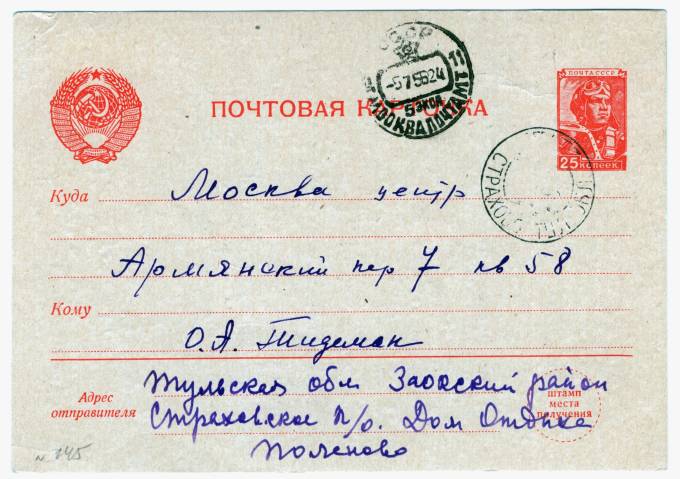 ПОЧТА СССР
25 КОПЕЕК
ПОЧТОВАЯ КАРТОЧКА
СССР
-5 7 56 24
5 экоп.
МОСКВА ПОЧТАМТ
11
СТРАХОВО
Куда Москва центр
Армянский пер 7 кв 58
Кому
О.А. Тидеман
Адрес отправителя
Тульская обл Заокский район
Страховское п/о. Дом Отдыха
Поленово
штамп
места
получения
№ 145